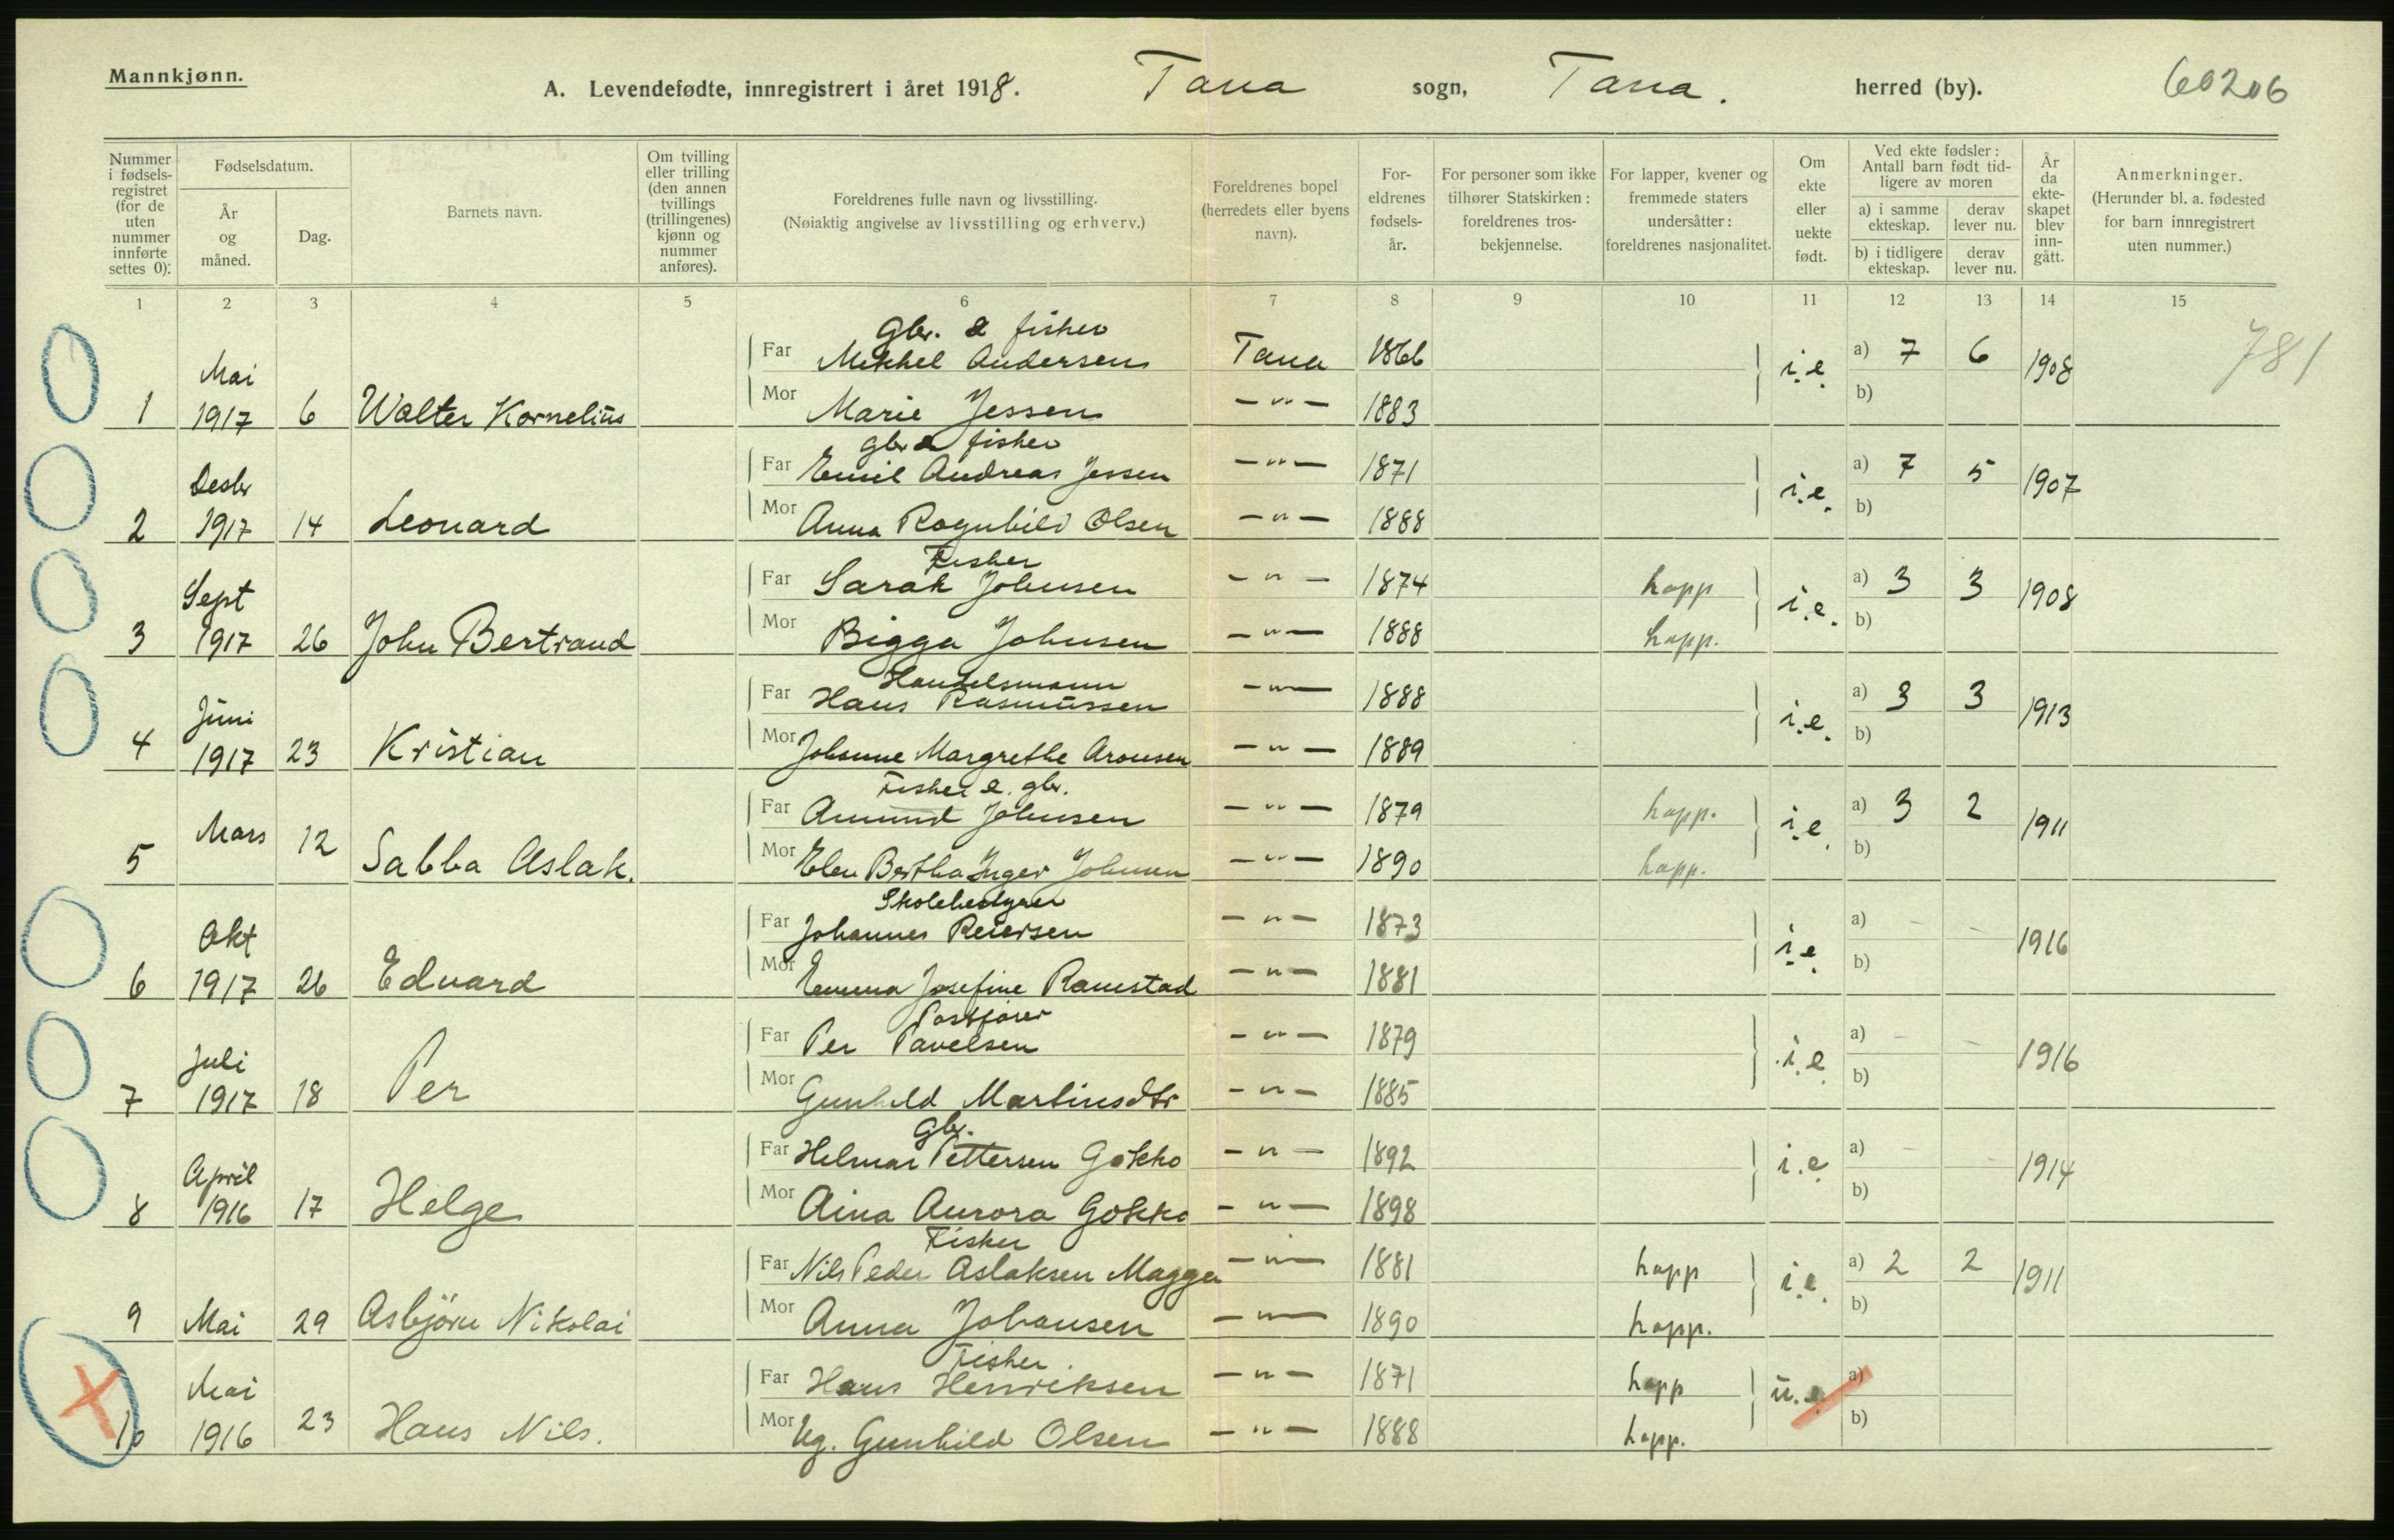 Mannkjønn.
A. Levendefødte, innregistrert i året 1918. Tana sogn, Tana. herred (by). 60206
Nummer i fødsels-registret (for de uten nummer innførte settes 0):
Fødselsdatum.
År og måned.
Dag.
Barnets navn.
Om tvilling eller trilling (den annen tvillings (trillingenes) kjønn og nummer anføres).
Foreldrenes fulle navn og livsstilling.
(Nøiaktig angivelse av livsstilling og erhverv.)
Foreldrenes bopel (herredets eller byens navn).
For-eldrenes fødsels-år.
For personer som ikke tilhører Statskirken: foreldrenes tros-bekjennelse.
For lapper, kvener og fremmede staters undersåtter: foreldrenes nasjonalitet.
Om ekte eller uekte født.
Ved ekte fødsler: Antall barn født tid-ligere av moren
a) i samme ekteskap.
derav lever nu.
b) i tidligere ekteskap.
derav lever nu.
År da ekte-skapet blev inn-gått.
Anmerkninger.
(Herunder bl. a. fødested for barn innregistrert uten nummer.)
1 2 3 4 5 6 7 8 9 10 11 12 13 14 15
Gbr. & fisker
Far Mikkel Andersen Tana 1866 i.e. a) 7 6 1908 781
Mai
1 1917 6 Walter Kornelius Mor Marie Jessen — " — 1883 b)
gbr & fisker
Far Emil Andreas Jessen — " — 1871 i.e. a) 7 5 1907
Desbr
2 1917 14 Leonard Mor Anna Ragnhild Olsen — " — 1888 b)
Fisker
Far Sarak Johnsen — " — 1874 lapp i.e. a) 3 3 1908
Sept
3 1917 26 John Bertrand Mor Bigga Johnsen — " — 1888 lapp. b)
Handelsmann
Far Hans Rasmussen — " — 1888 i.e. a) 3 3 1913
Juni
4 1917 23 Kristian Mor Johanne Margrethe Aronsen — " — 1889 b)
Fisker & gbr.
Far Amund Johnsen — " — 1879 lapp. i.e. a) 3 2 1911
Mars 12
5 Sabba Aslak. Mor Elen Bertha Inger Johnsen — " — 1890 lapp. b)
Skolebestyrer
Far Johannes Reiersen — " — 1873 i.e. a) - - 1916
Okt
6 1917 26 Edvard Mor Emma Josefine Ramstad — " — 1881 b)
Postfører
Far Per Pavelsen — " — 1879 i.e. a) - - 1916
Juli
7 1917 18 Per Mor Gunhild Martinsdtr — " — 1885 b)
Gbr.
Far Helmar Pettersen Gokko — " — 1892 i.e. a) - - 1914
April
8 1916 17 Helge Mor Aina Aurora Gokko — " — 1898 b)
Fisker
Far Nils Peder Aslaksen Magga — " — 1881 lapp i.e. a) 2 2 1911
9 Mai 29 Asbjörn Nikolai Mor Anna Johansen — " — 1890 lapp. b)
Fisker
Far Hans Henriksen — " — 1871 lapp u.e. a)
Mai
10 1916 23 Hans Nils. Mor Ug. Gunhild Olsen — " — 1888 lapp. b)